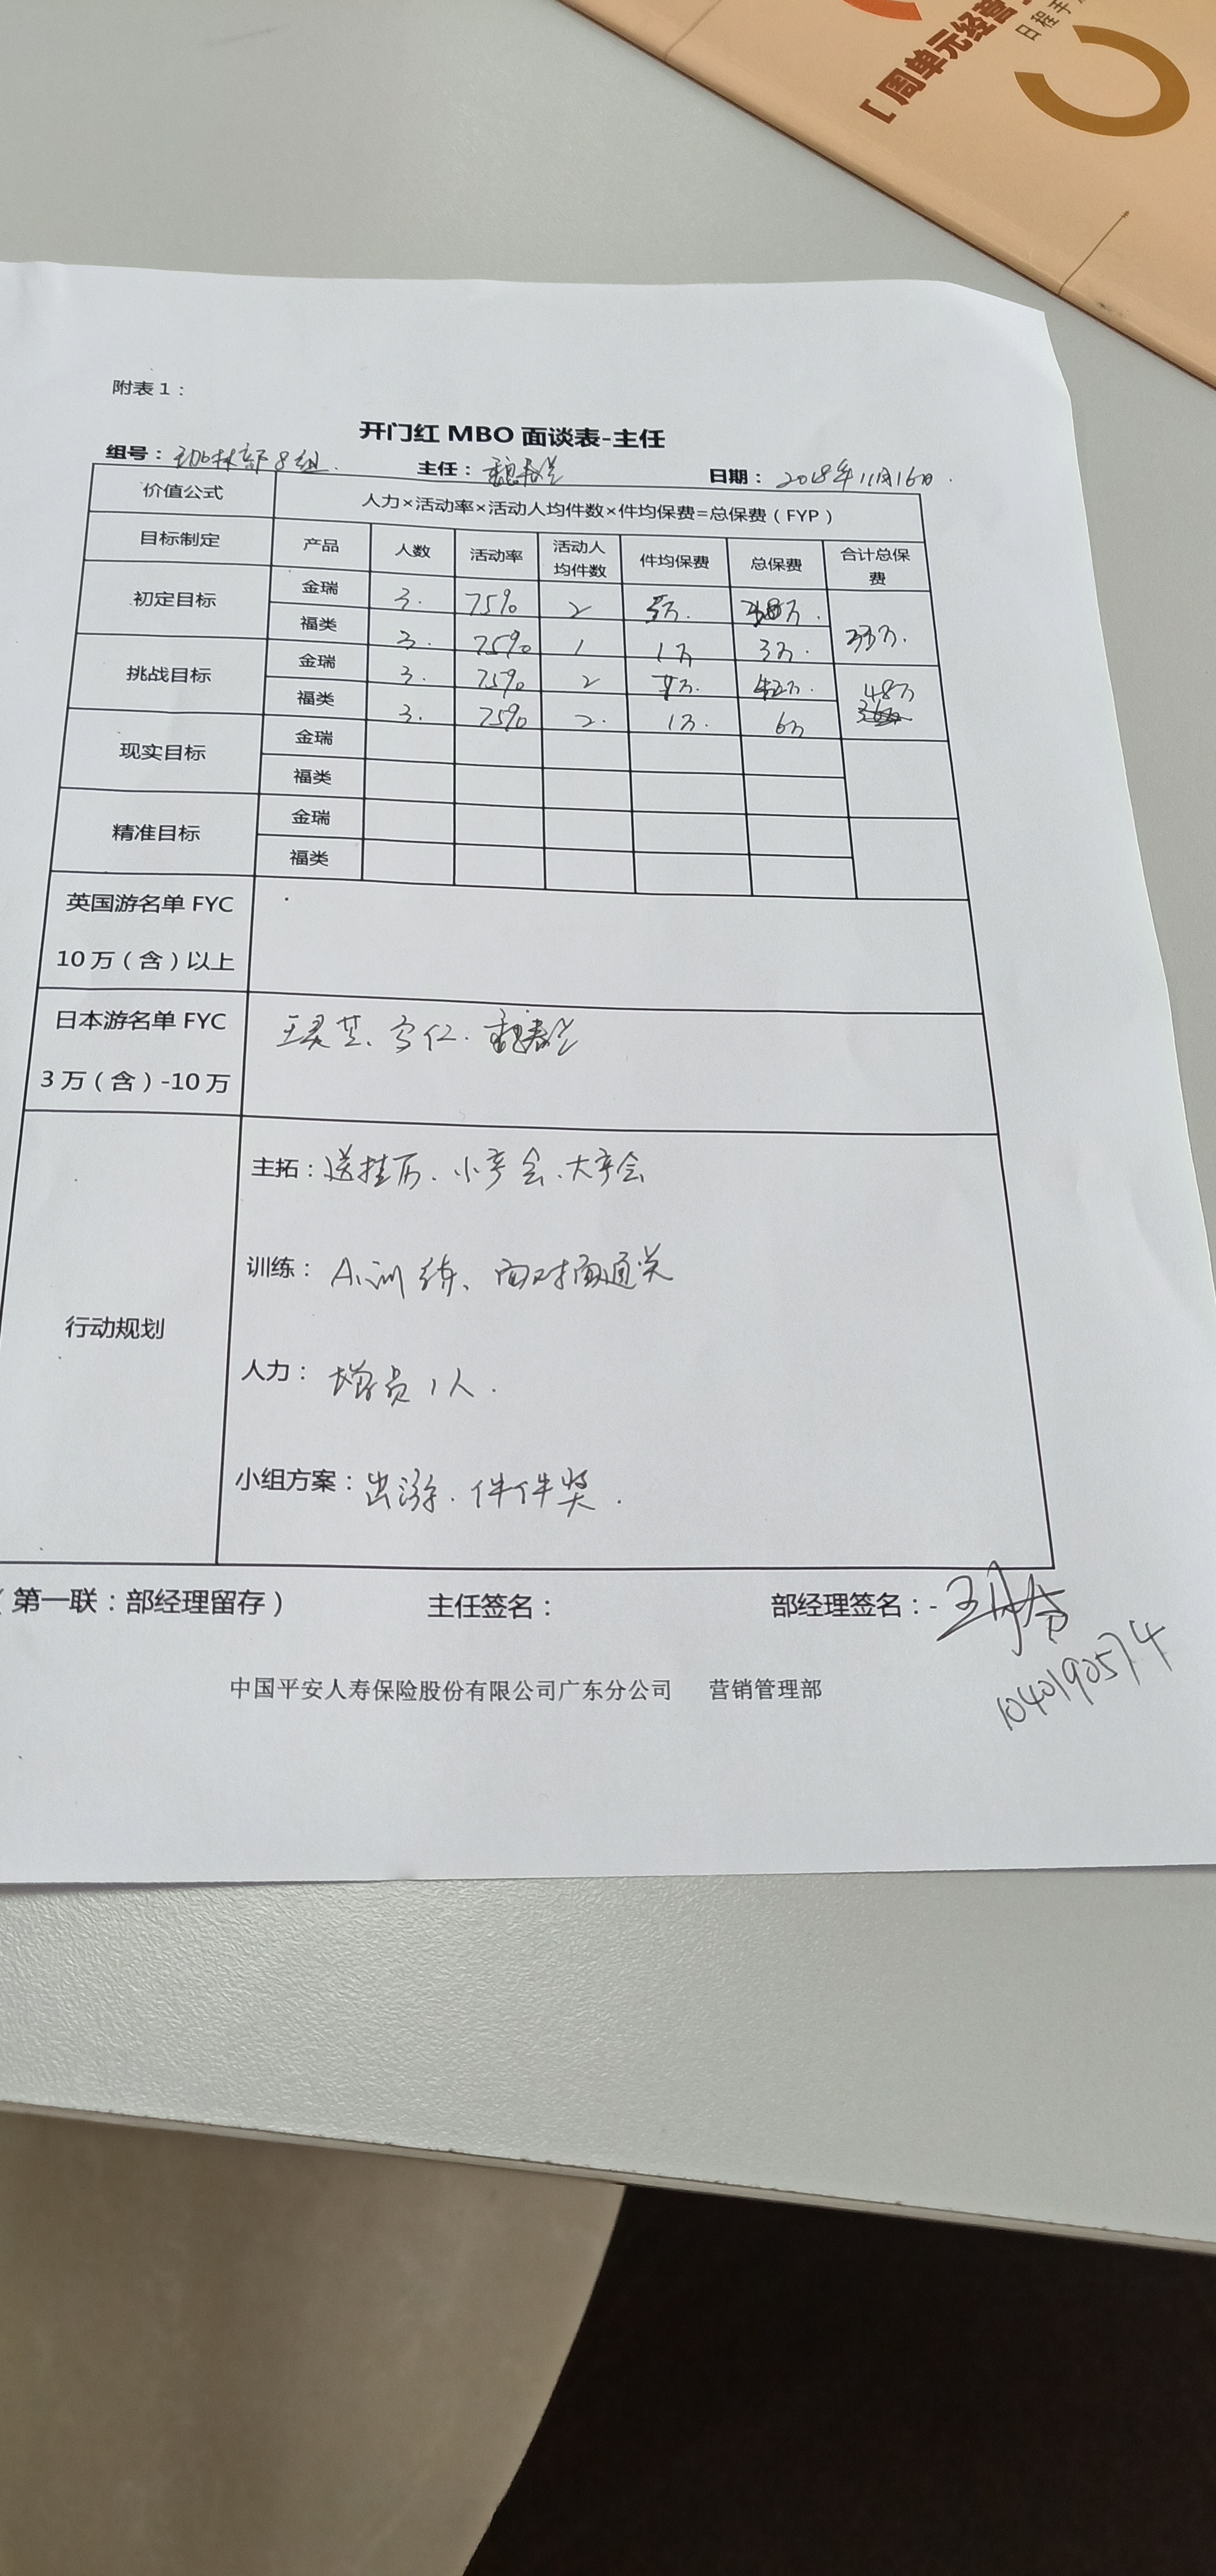 [周单元经营
日程手
附表1：
开门红 MBO 面谈表-主任
组号： 部8组 主任： 日期： 2018年11月16日
价值公式 人力×活动率×活动人均件数×件均保费=总保费（FYP）
目标制定 产品 人数 活动率 活动人均件数 件均保费 总保费 合计总保费
初定目标 金瑞 3. 75% 2 5万. 万. 33万.
福类 3. 75% 1 1万 3万.
挑战目标 金瑞 3. 75% 2 7万. 42万. 48万
福类 3. 75% 2. 1万. 6万
现实目标 金瑞
福类
精准目标 金瑞
福类
英国游名单 FYC
10万（含）以上
日本游名单 FYC
3万（含）-10万
行动规划
主拓：送挂历、小产会、大产会
训练：AI训练、面对面通关
人力：增员1人.
小组方案：出游. 件件奖.
（第一联：部经理留存） 主任签名： 部经理签名：
1040190574
中国平安人寿保险股份有限公司广东分公司 营销管理部